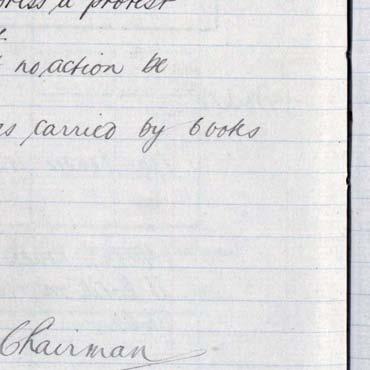 a protest
no action be
carried by 6 ooks
Chairman